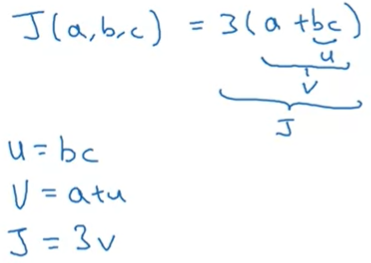 J(a,b,c) = 3(a+bc)
u
V
J
u = bc
V = a+u
J = 3v